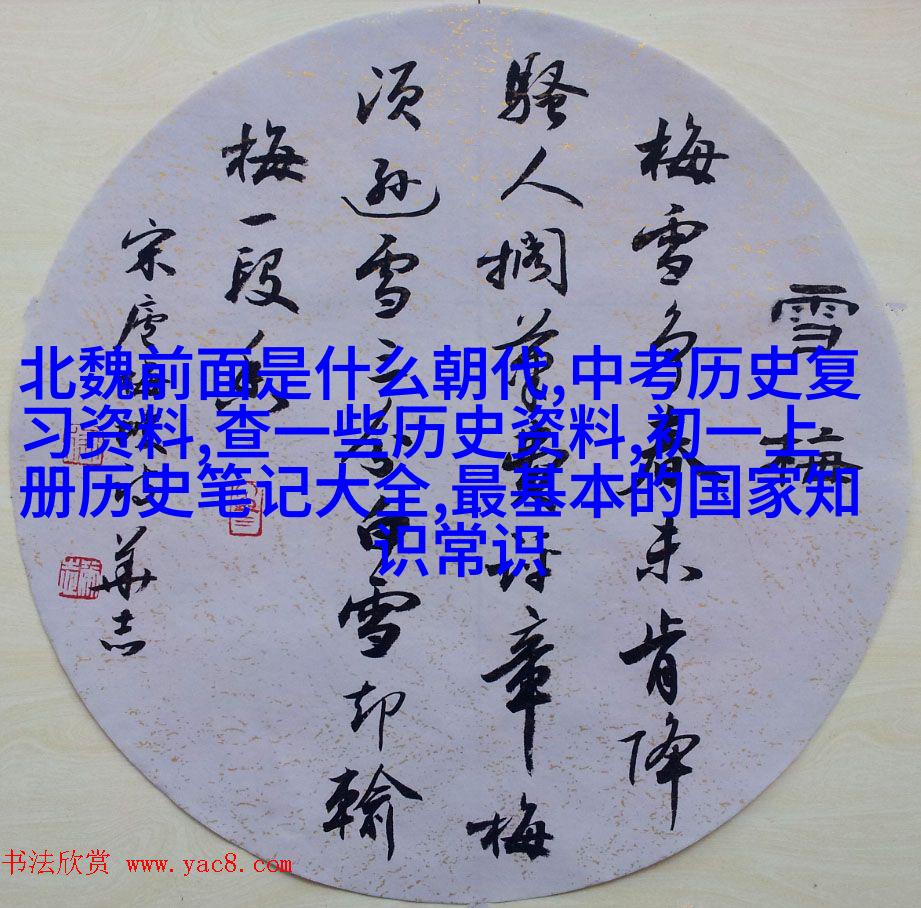 雪梅
梅雪争春未肯降
骚人搁筆費诗章梅
须遜雪三分白雪却輸
梅一段香
宋盧梅坡
華志
北魏前面是什么朝代,中考历史复
习资料,查一些历史资料,初一上
册历史笔记大全,最基本的国家知
识常识
书法欣赏 www.yac8.com